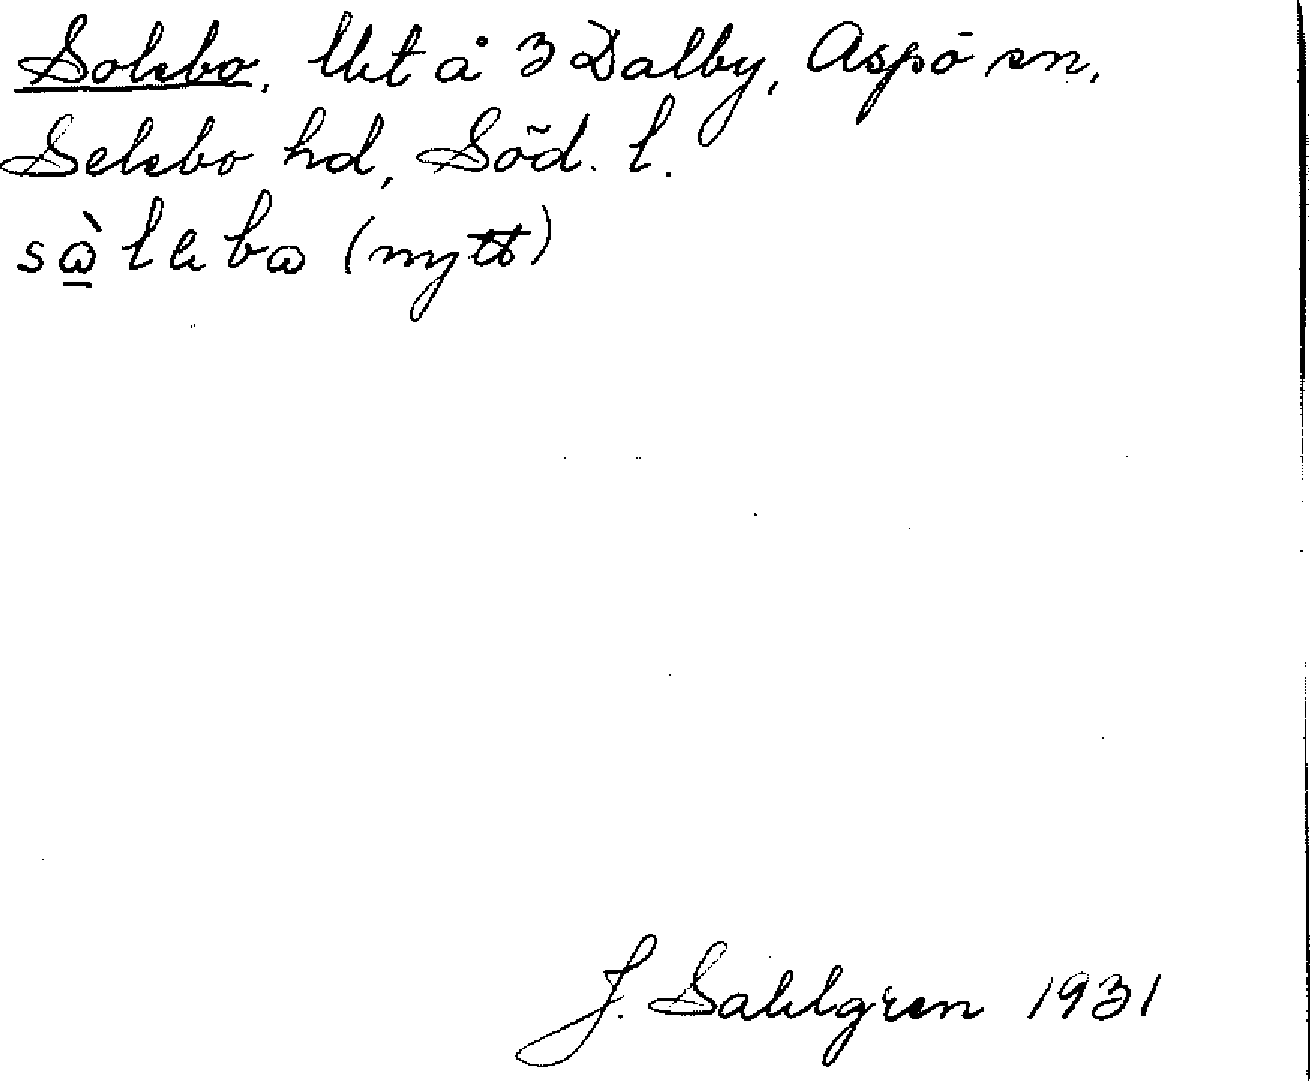 Solebo, lht å 3 Dalby, Aspö sn,
Selebo hd, Söd. l.
sὼ̱lebω (nytt)
J. Sahlgren 1931